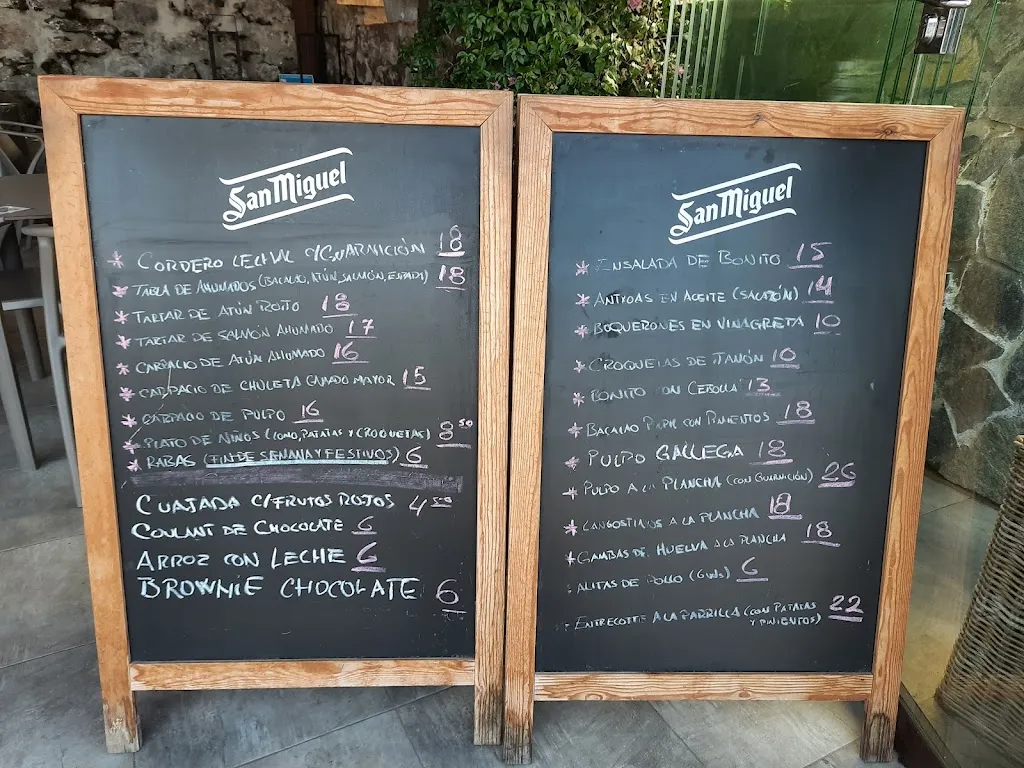 San Miguel
* CORDERO LECHAL C/GUARNICIÓN 18
* TABLA DE AHUMADOS (BACALAO, ATÚN, SALMÓN, ESPADA) 18
* TARTAR DE ATÚN ROJO 18
* TARTAR DE SALMÓN AHUMADO 17
* CARPACIO DE ATÚN AHUMADO 16
* CARPACIO DE CHULETA GANADO MAYOR 15
* CARPACIO DE PULPO 16
* PLATO DE NIÑOS (LOMO, PATATAS Y CROQUETAS) 8 50
* RABAS (FIN DE SEMANA Y FESTIVOS) 6
CUAJADA C/FRUTOS ROJOS 4 50
COULANT DE CHOCOLATE 6
ARROZ CON LECHE 6
BROWNIE CHOCOLATE 6
San Miguel
* ENSALADA DE BONITO 15
* ANTXOAS EN ACEITE (SALAZÓN) 14
* BOQUERONES EN VINAGRETA 10
* CROQUETAS DE JAMÓN 10
* BONITO CON CEBOLLA 13
* BACALAO PILPIL CON PIMIENTOS 18
* PULPO GALLEGA 18
* PULPO A LA PLANCHA (CON GUARNICIÓN) 26
* LANGOSTINOS A LA PLANCHA 18
* GAMBAS DE HUELVA A LA PLANCHA 18
ALITAS DE POLLO (6 uds) 6
ENTRECOTTE A LA PARRILLA (CON PATATAS 22
Y PIMIENTOS)